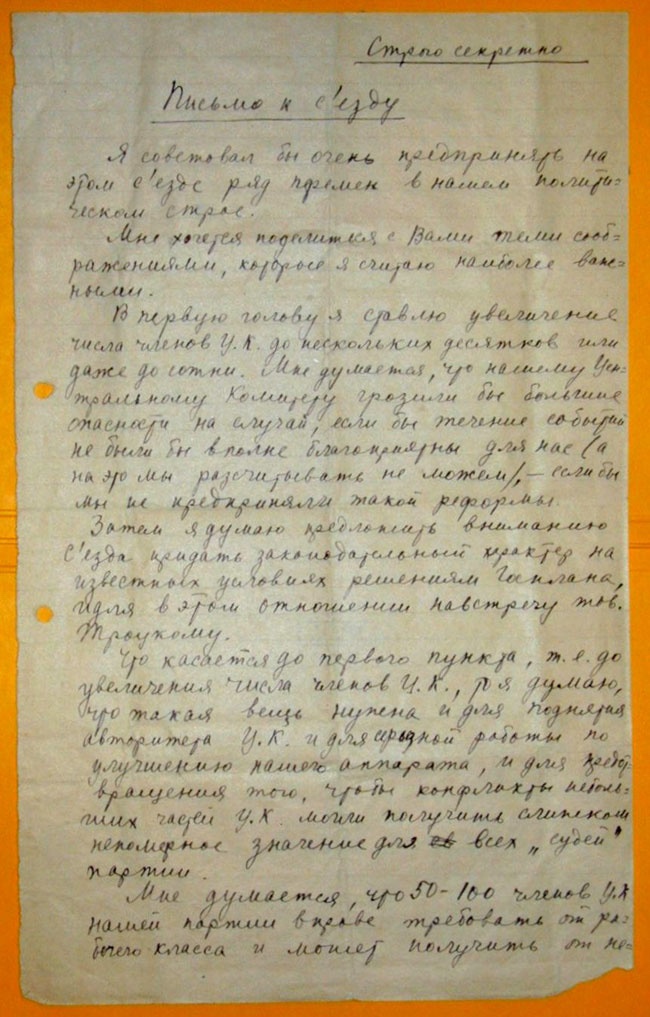 Строго секретно
Письмо к с'езду
Я советовал бы очень предпринять на
этом с'езде ряд перемен в нашем полити-
ческом строе.
Мне хочется поделиться с Вами теми сооб-
ражениями, которые я считаю наиболее важ-
ными.
В первую голову я ставлю увеличение
числа членов Ц.К. до нескольких десятков или
даже до сотни. Мне думается, что нашему Цен-
тральному Комитету грозили бы большие
опасности на случай, если бы течение событий
не были бы вполне благоприятны для нас (а
на это мы рассчитывать не можем), – если бы
мы не предприняли такой реформы.
Затем я думаю предложить вниманию
С'езда придать законодательный характер на
известных условиях решениям Госплана,
идя в этом отношении навстречу тов.
Троцкому.
Что касается до первого пункта, т.е. до
увеличения числа членов Ц.К., то я думаю,
что такая вещь нужна и для поднятия
авторитета Ц.К. и для работы по
улучшению нашего аппарата, и для предот-
вращения того, чтобы конфликты неболь-
ших частей Ц.К. могли получить слишком
непомерное значение для всех „судеб"
партии.
Мне думается, что 50-100 членов Ц.К.
нашей партии вправе требовать от ра-
бочего класса и может получить от не-